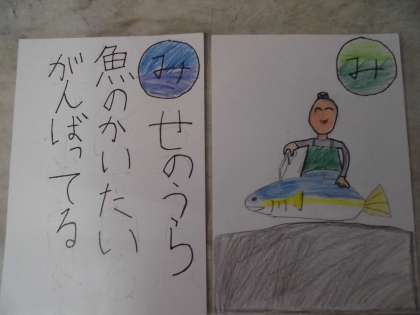 みせのうら
魚のかいたい
がんばってる
み